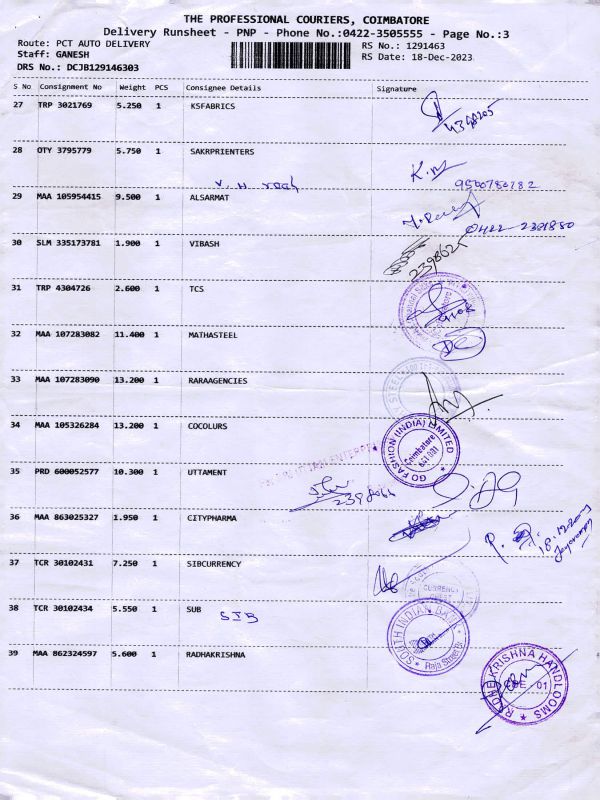 THE PROFESSIONAL COURIERS, COIMBATORE
Delivery Runsheet - PNP - Phone No.:0422-3505555 - Page No.:3
Route: PCT AUTO DELIVERY
RS No.: 1291463
Staff: GANESH
RS Date: 18-Dec-2023
DRS No.: DCJB129146303
S No Consignment No Weight PCS Consignee Details Signature
27 TRP 3021769 5.250 1 KSFABRICS
28 OTY 3795779 5.750 1 SAKRPRIENTERS
29 MAA 105954415 9.500 1 ALSARMAT
0422 2381880
30 SLM 335173781 1.900 1 VIBASH
31 TRP 4304726 2.600 1 TCS
32 MAA 107283082 11.400 1 MATHASTEEL
33 MAA 107283090 13.200 1 RARAAGENCIES
34 MAA 105326284 13.200 1 COCOLURS
GO FASHION (INDIA) LIMITED
Coimbatore
641 001
35 PRD 600052577 10.300 1 UTTAMENT
36 MAA 863025327 1.950 1 CITYPHARMA
37 TCR 30102431 7.250 1 SIBCURRENCY
CURRENCY
CHEST
38 TCR 30102434 5.550 1 SUB
SIB
SOUTH INDIAN BANK
Raja Street Br.
39 MAA 862324597 5.600 1 RADHAKRISHNA
KRISHNA HANDLOOMS
01